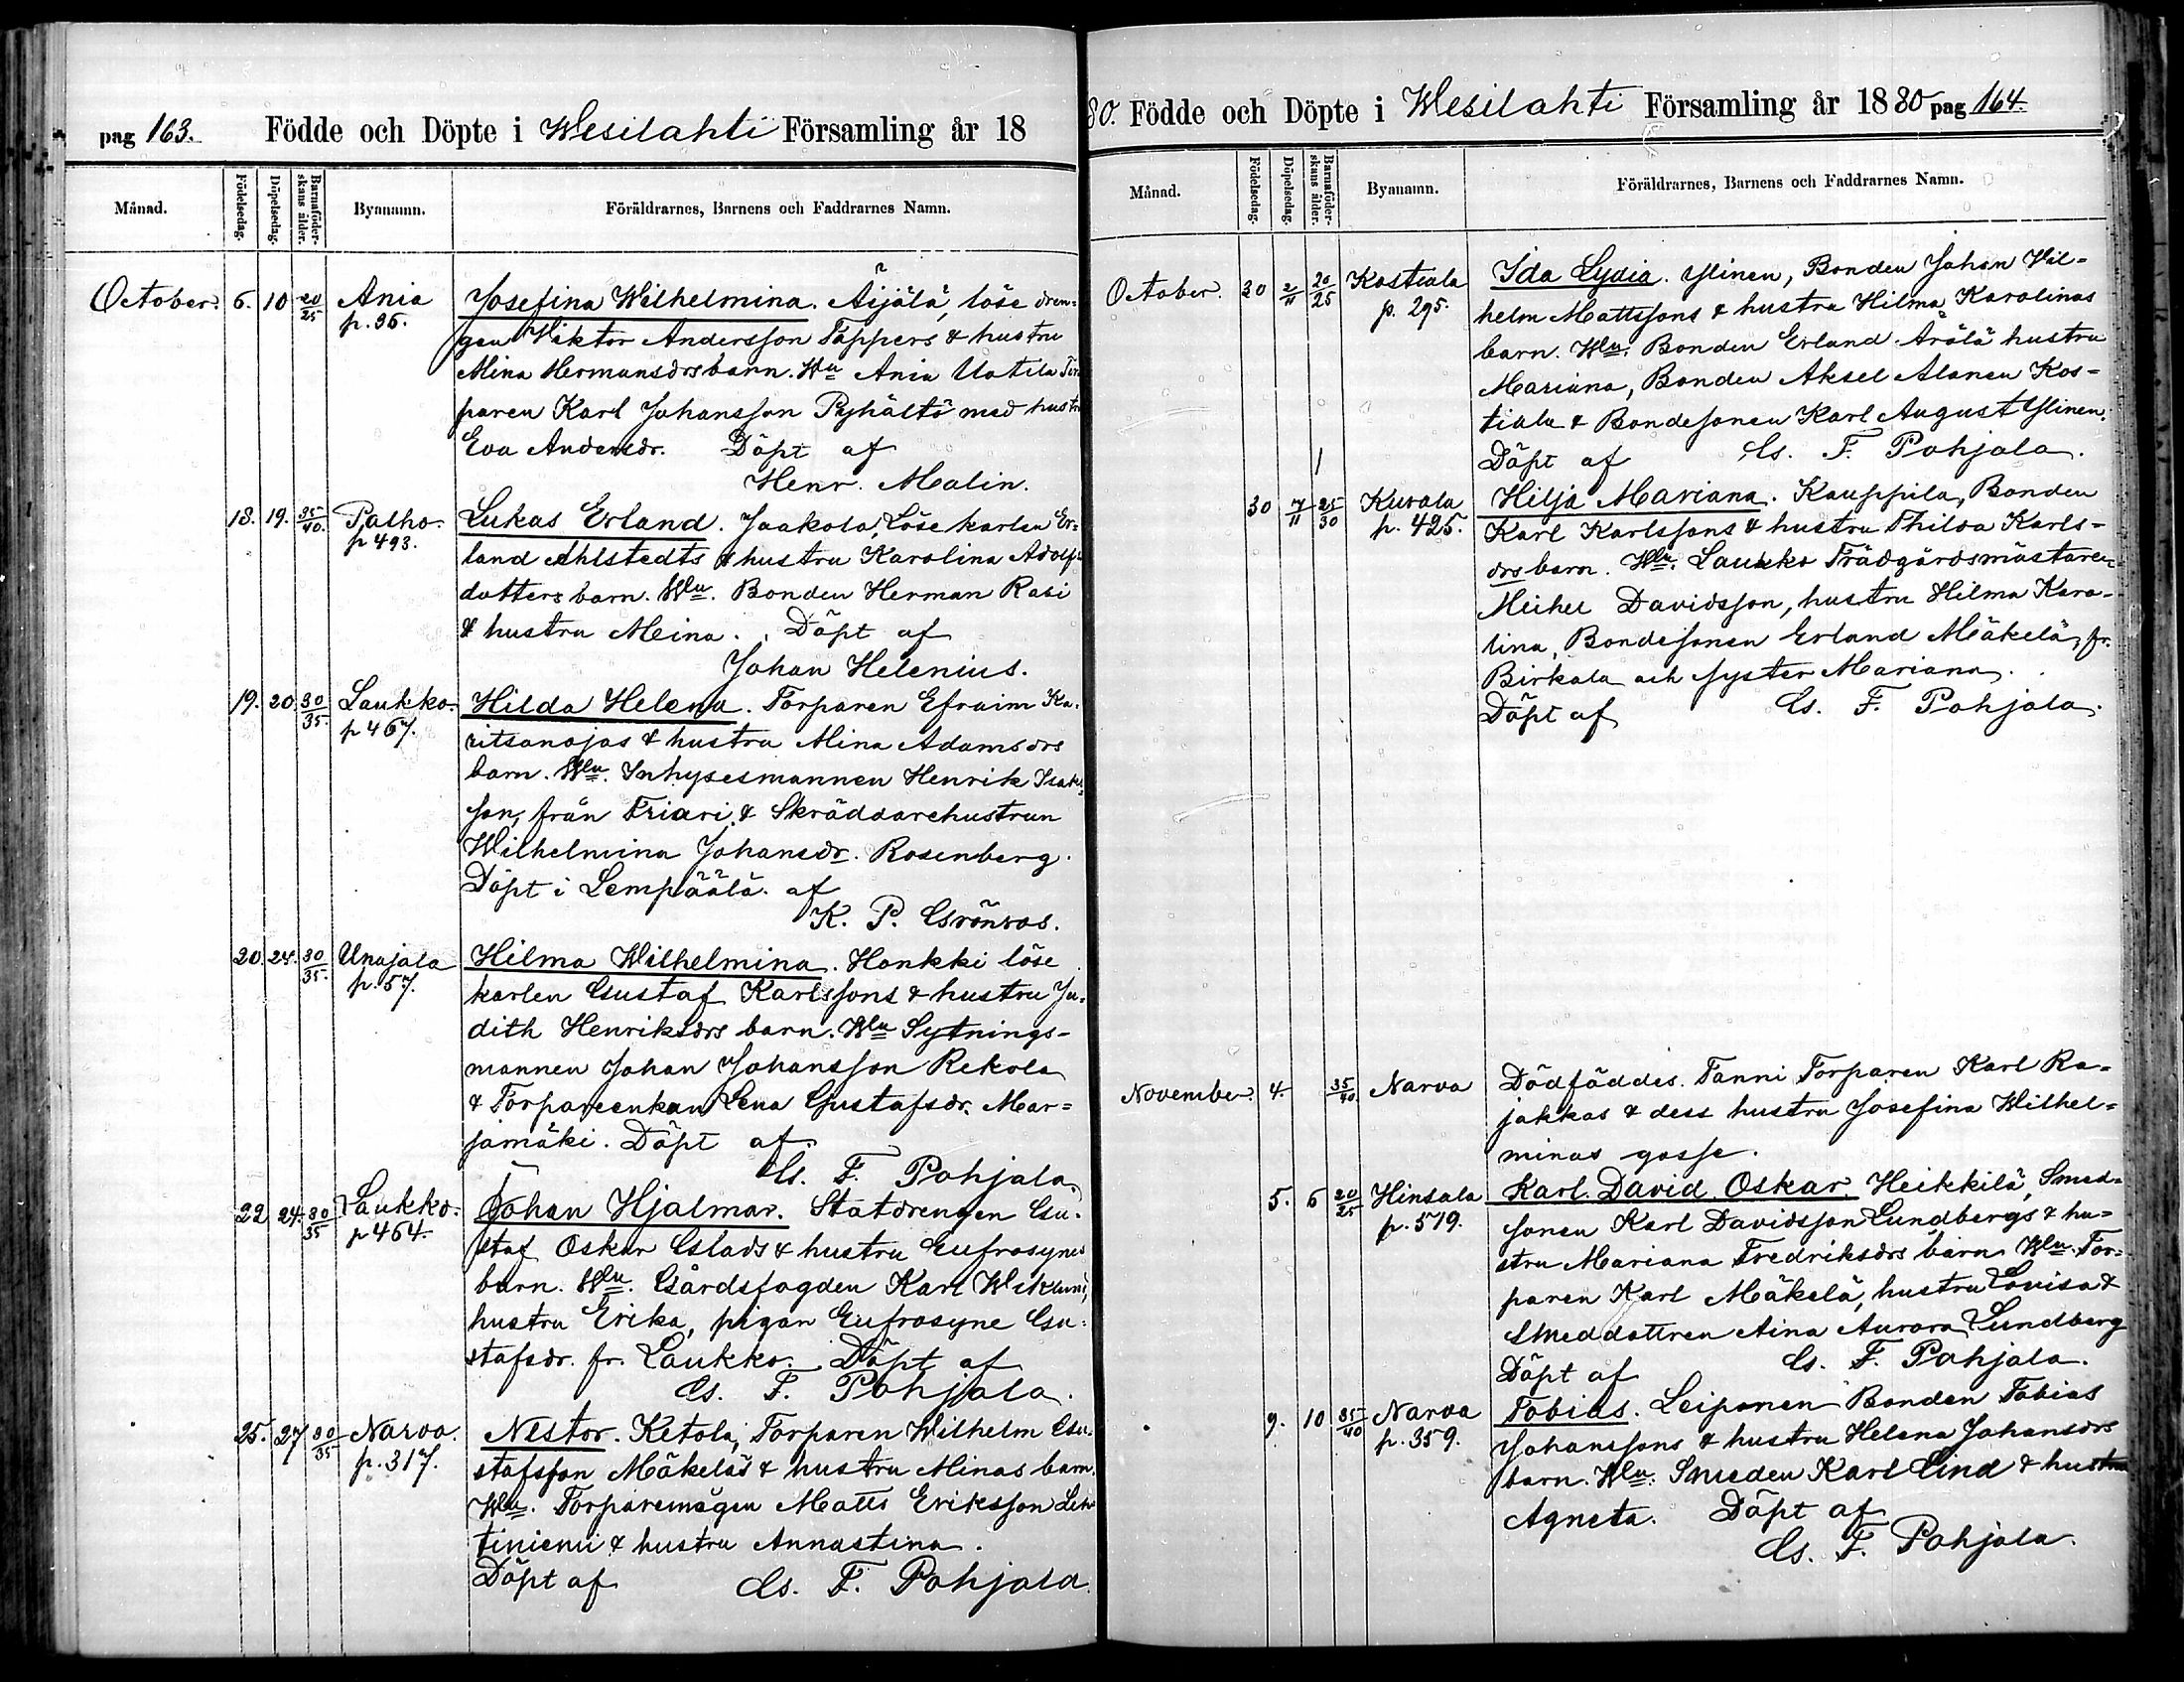 pag 163. Födde och Döpte i Wesilahti Församling år 18
Månad. Födelsedag. Döpelsedag. Barnaföderskans ålder. Bynamn. Föräldrarnes, Barnens och Faddrarnes Namn.
October. 6. 10 20/25 Ania p. 36. Josefina Wilhelmina. Äijälä, löse dren=
gen Viktor Andersson Täppers & hustru
Mina Hermansdrs barn. Wn Ania Uotila Tor
paren Karl Johansson Pyhältö med hustru
Eva Andersdr. Döpt af
Henr. Malin.
18. 19. 35/40. Palho. p 493. Lukas Erland. Jaakola, Löse karlen Er=
land Ahlstedts & hustru Karolina Adolfs
dotters barn. Wn. Bonden Herman Rasi
& hustru Meina. Döpt af
Johan Helenius.
19. 20. 30/35 Laukko. p 467. Hilda Helena. Torparen Efraim Ka.
ritsanojas & hustru Mina Adamsdrs
barn. Wn. Inhysesmannen Henrik Isaks
son, från Friari, & Skräddarehustrun
Wilhelmina Johansdr. Rosenberg.
Döpt i Lempäälä. af
K. P. Grönroos.
20. 24. 30/35. Unajala p. 57. Hilma Wilhelmina. Honkki löse
karlen Gustaf Karlssons & hustru Ju=
dith Henriksdrs barn. Wn Sytnings-
mannen Johan Johansson Rekola
& Torpareenkan Lena Gustafsdr. Mar=
jamäki. Döpt af
G. F. Pohjala.
22 24. 30/35 Laukko. p 464. Johan Hjalmar. Statdrengen Gu.
staf Oskar Glads & hustru Eufrosynes
barn. Wn. Gårdsfogden Karl Wiklund,
hustru Erika, pigan Eufrosyne Gu.
stafsdr. fr. Laukko. Döpt af
G. F. Pohjala.
25. 27 30/35 Narva. p. 317. Nestor. Ketola, Torparen Wilhelm Gu.
stafsson Mäkeläs & hustru Minas barn.
Wn. Torparemågen Matts Eriksson Leh
tiniemi & hustru Annastina.
Döpt af G. F. Pohjala.
80. Födde och Döpte i Wesilahti Församling år 1880 pag 164.
Månad. Födelsedag. Döpelsedag. Barnaföderskans ålder. Bynamn. Föräldrarnes, Barnens och Faddrarnes Namn.
October. 30 2/11 20/25 Kostiala p. 295. Ida Lydia. Ylinen, Bonden Johan Wil-
helm Mattssons & hustru Hilma Karolinas
barn. Wn. Bonden Erland Arölä hustru
Mariana, Bonden Aksel Alanen Kos-
tiala & Bondesonen Karl August Ylinen.
Döpt af G. F. Pohjala.
30 7/11 25/30 Kurala p. 425. Hilja Mariana. Kauppila, Bonden
Karl Karlssons & hustru Thilda Karls-
drs barn. Wn. Laukko Trädgårdsmästaren
Michel Davidsson, hustru Hilma Karo-
lina, Bondesonen Erland Mäkelä, fr.
Birkala och syster Mariana.
Döpt af G. F. Pohjala.
November. 4. 35/40 Narva Dödföddes. Tanni Torparen Karl Ra-
jakkas & dess hustru Josefina Wilhel=
minas gosse.
5. 6 20/25 Hinsala p. 519. Karl David Oskar. Heikkilä, Smed-
sonen Karl Davidsson Lundbergs & hu=
stru Mariana Fredriksdrs barn. Wn. Tor=
paren Karl Mäkelä, hustru Lovisa &
Smeddottren Aina Aurora Lundberg
Döpt af G. F. Pohjala.
9. 10 35/40 Narva p. 359. Tobias. Leiponen Bonden Tobias
Johanssons & hustru Helena Johansdrs
barn. Wn. Smeden Karl Lind & hustru
Agneta. Döpt af
G. F. Pohjala.